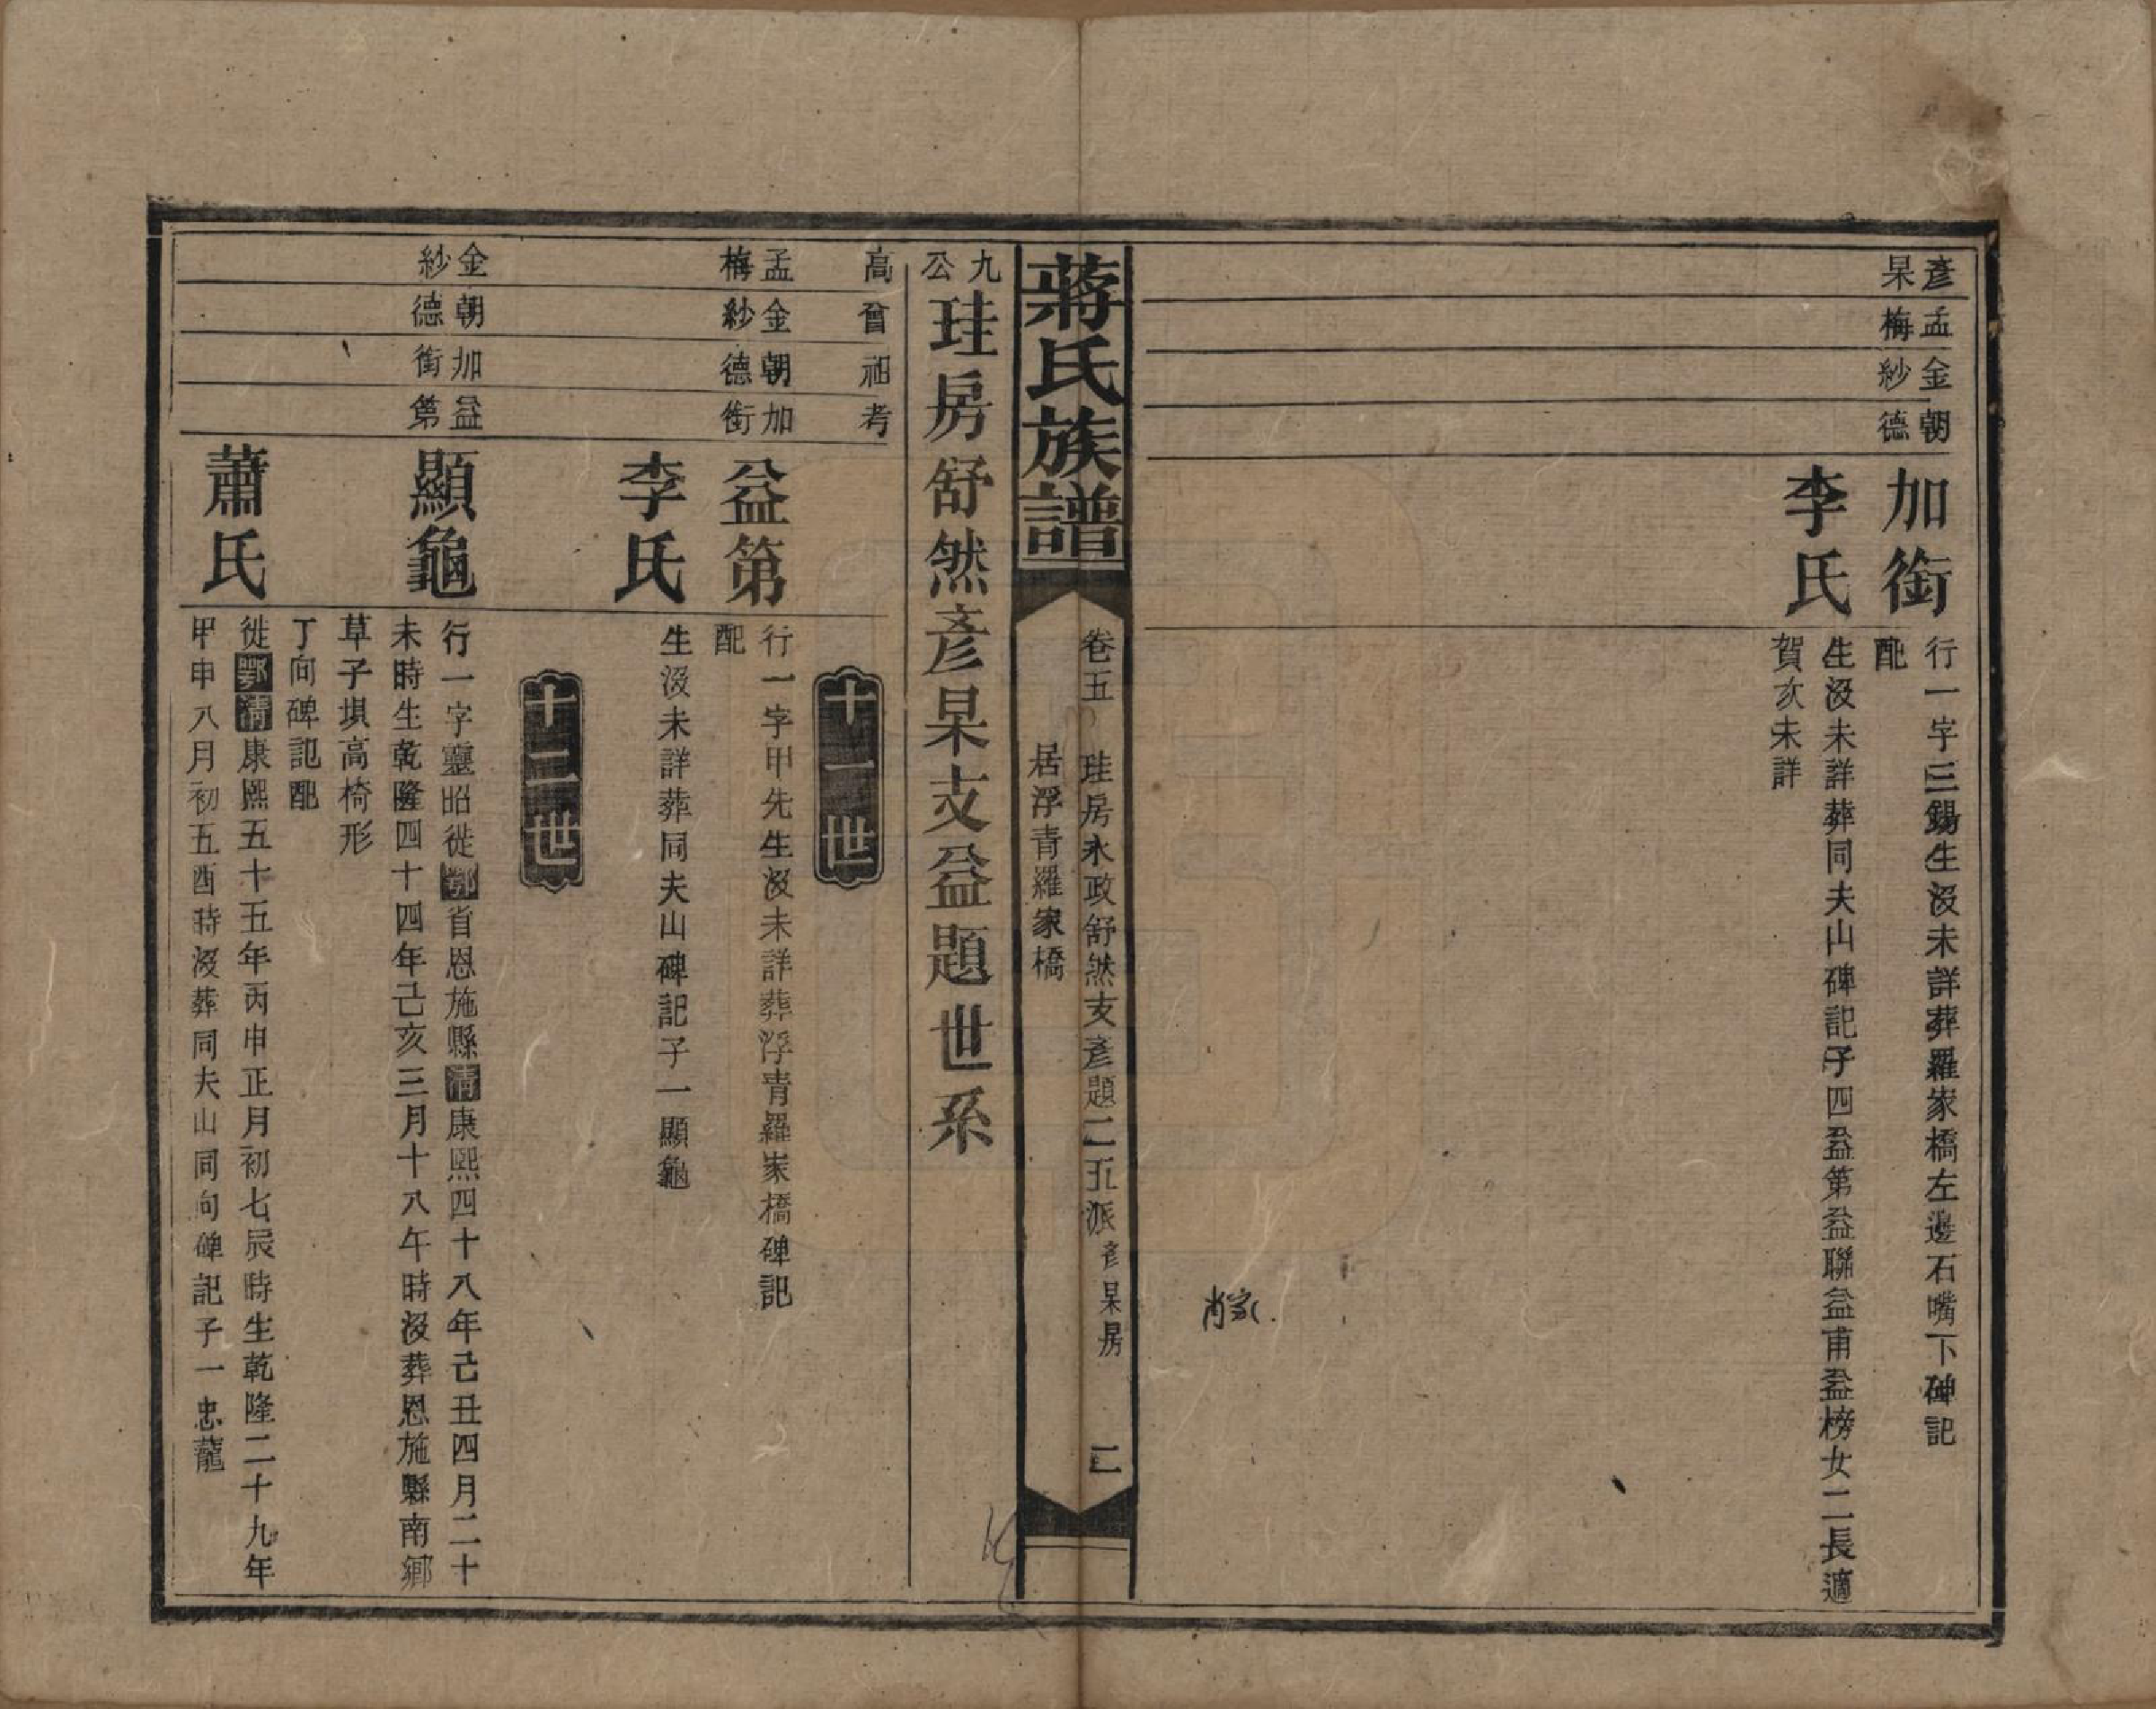 彥杲
孟梅
金紗
朝德
加銜
行一字三錫生沒未詳葬羅家橋左邊石嘴下碑記
配
李氏
生沒未詳葬同夫山碑記子四益第益聯益甫益榜女二長適
賀次未詳
蔣氏族譜
卷五 珪房永政舒然支彥題二五派彥杲房 二
居浮青羅家橋
九公珪房舒然彥杲支益題世系
高曾祖考
十一世
孟梅
金紗
朝德
加銜
益第
行一字甲先生沒未詳葬浮青羅家橋碑記
配
李氏
生沒未詳葬同夫山碑記子一顯龜
十二世
金紗
朝德
加銜
益第
顯龜
行一字靈昭徙鄂省恩施縣清康熙四十八年己丑四月二十
未時生乾隆四十四年己亥三月十八午時沒葬恩施縣南鄉
草子垻高椅形
丁向碑記配
蕭氏
徙鄂清康熙五十五年丙申正月初七辰時生乾隆二十九年
甲申八月初五酉時沒葬同夫山同向碑記子一忠龍